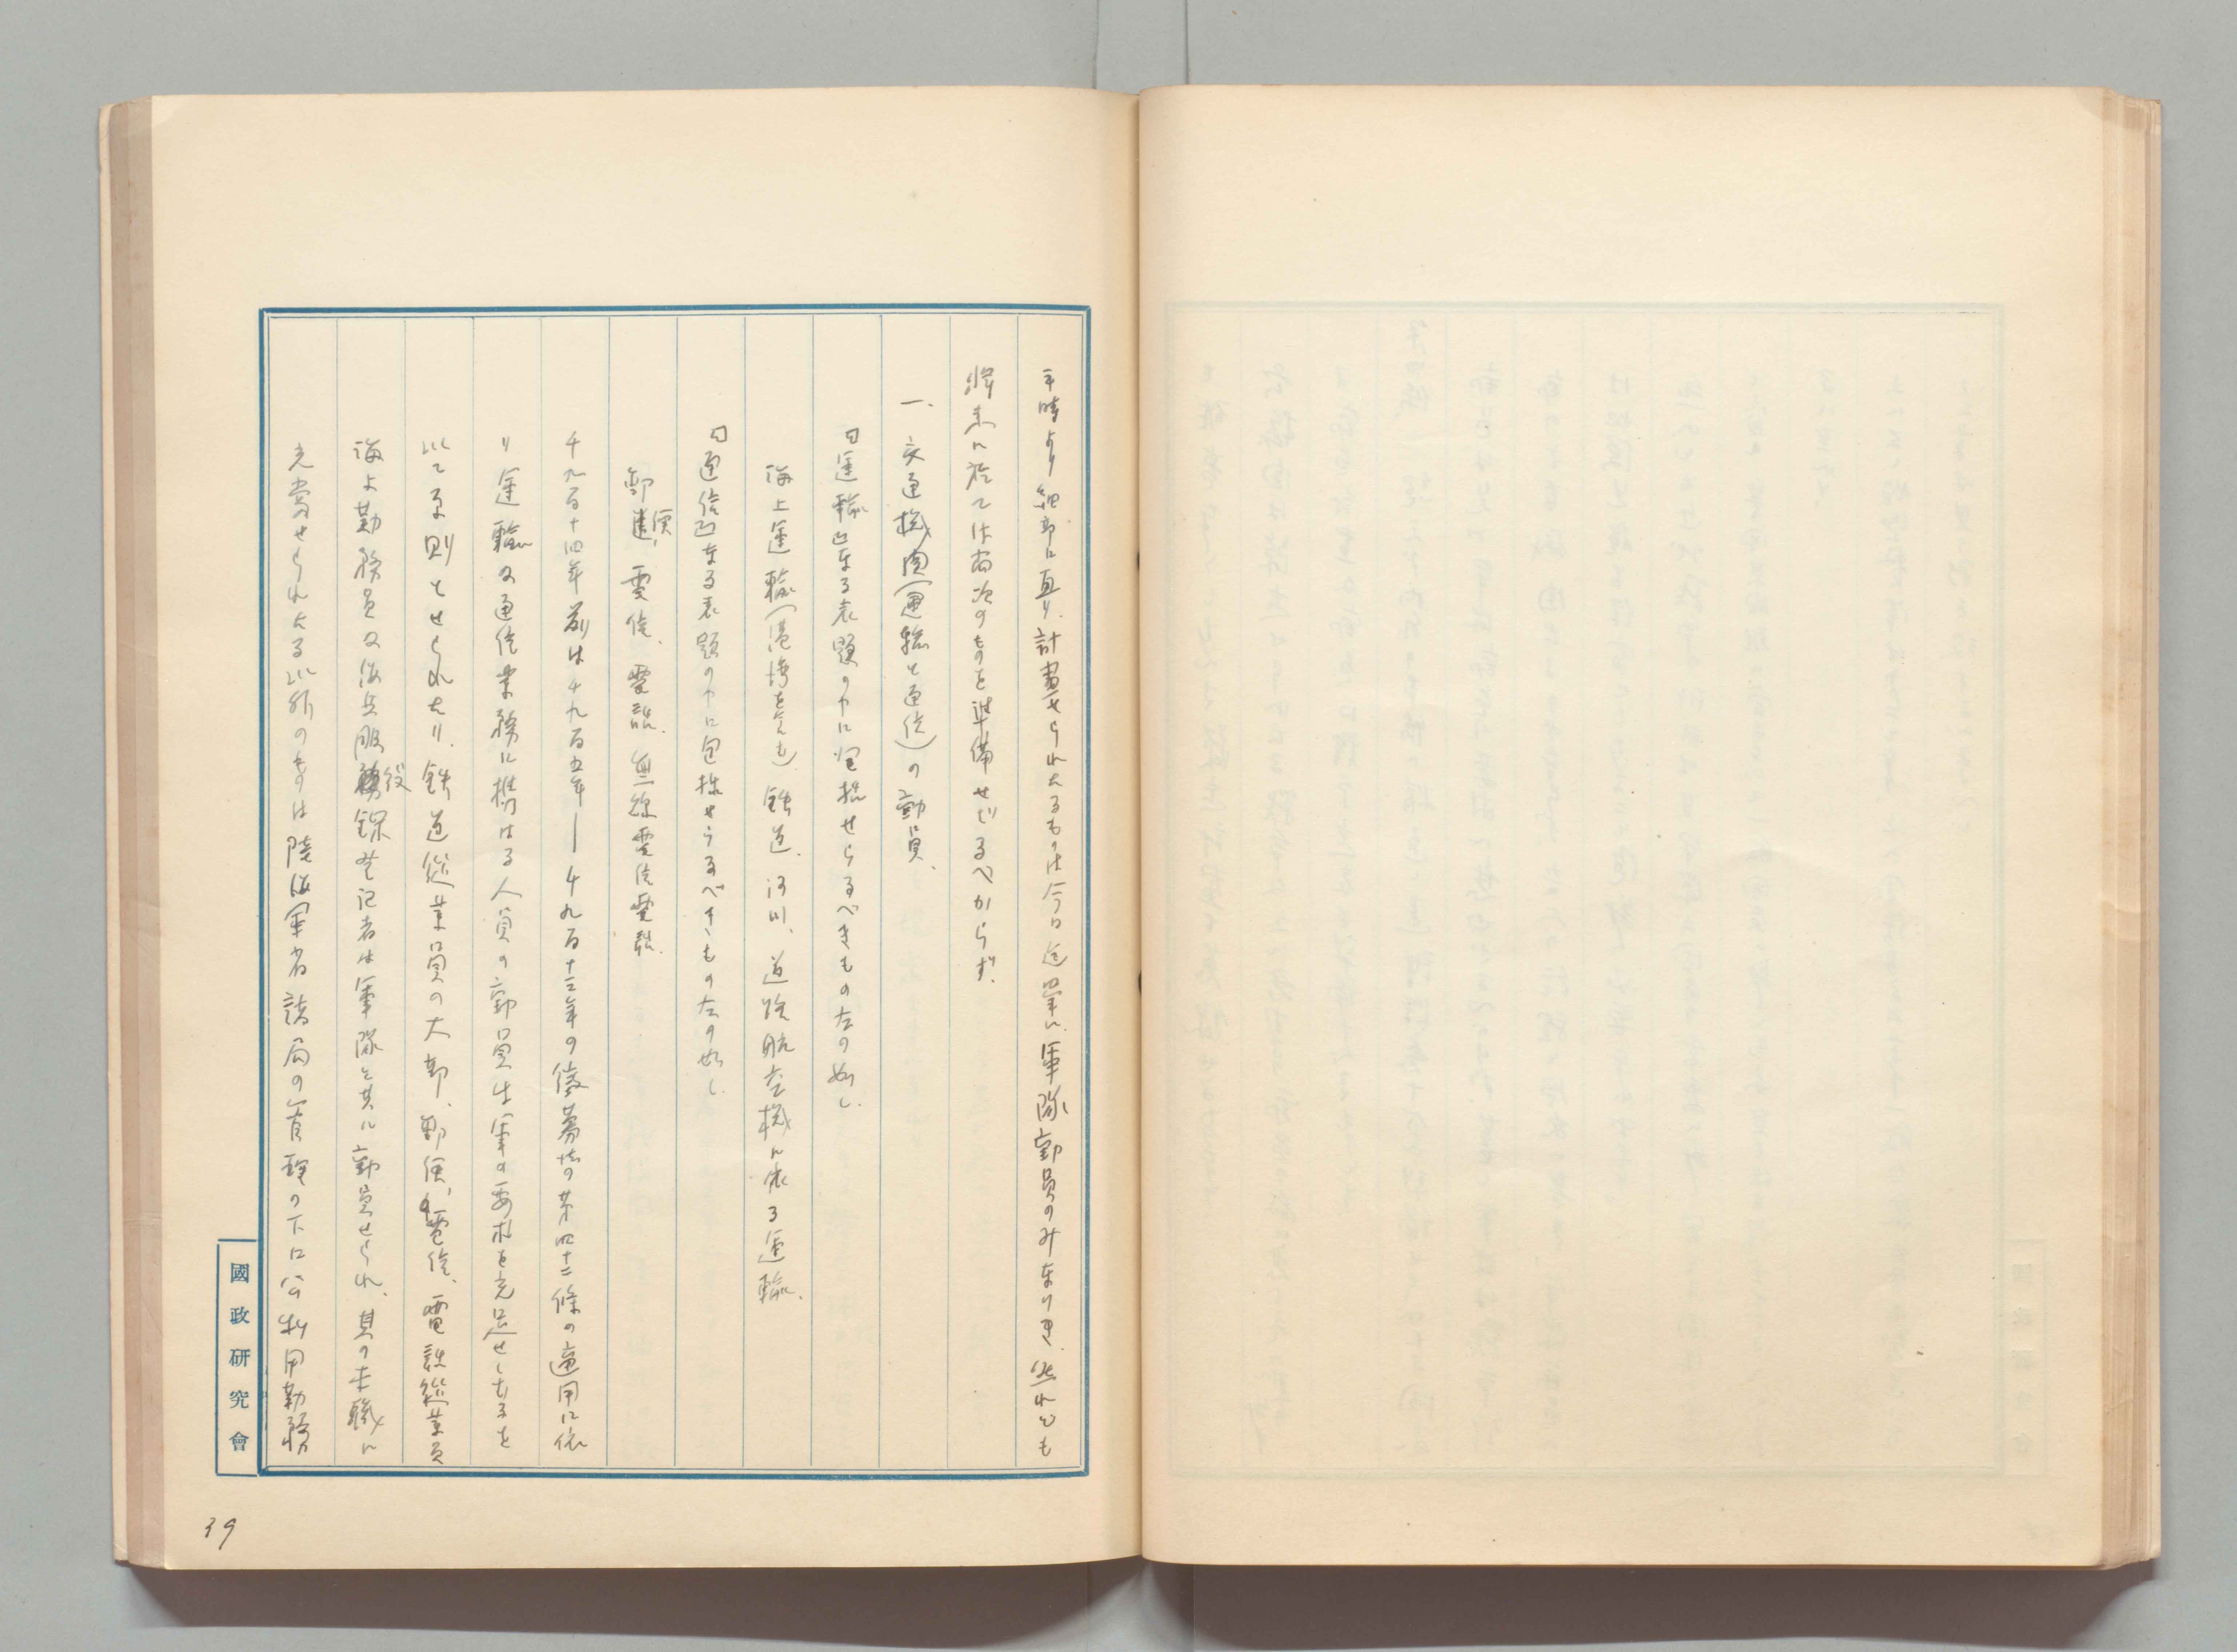 平時より細部に亘り、計畫せられたるものは今日迄單に軍隊動員のみなりき。然れども
將来に於ては尚次のものを準備せざるべからず。
一、交通機関(運輸と通信)の動員、
「運輸」なる表題の中に包括せらるべきもの左の如し、
海上運輸(港湾をも)鉄道、河川、道路航空機に依る運輸、
「通信」なる表題の中に包括せらるべきもの左の如し、
郵便、電信、電話、無線電信電話、
千九百十四年前は千九百五年―千九百十三年の徴募法の第四十二條の適用に依
り運輸及通信業務に携はる人員の動員は軍の要求を充足せしむるを
以て原則とせられたり、鉄道從業員の大部、郵便、電信、電話從業員
海上勤務員及海兵服役錄登記者は軍隊と共に動員せられ、其の本職に
充當せられたる以外のものは陸海軍省諸局の管理の下に公衆用勤務
國政研究會
39